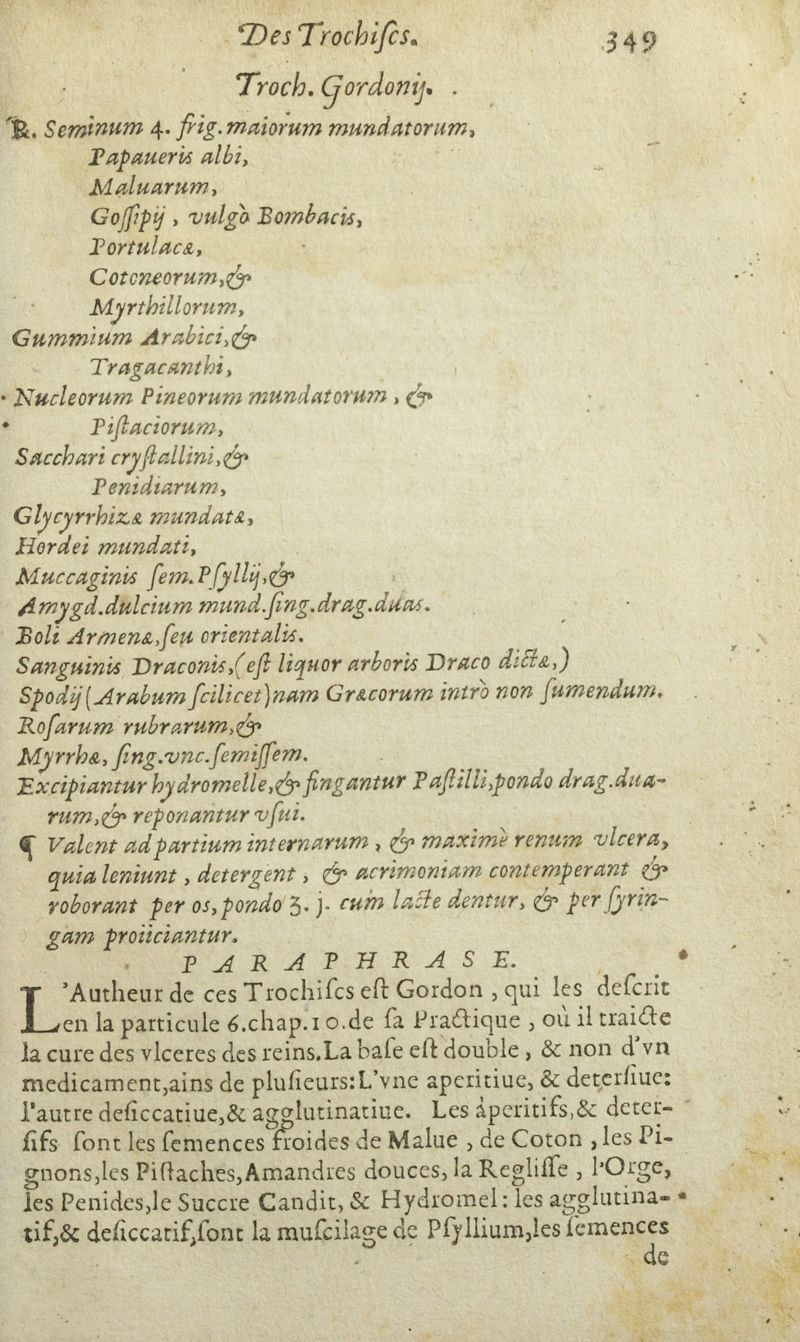 Des Trochiſcs. 349
Troch. Gordonij.
℞. Seminum 4. frig. maiorum mundatorum,
Papaueris albi,
Maluarum,
Goſſipij, vulgò Bombacis,
Portulacæ,
Cotoneorum, &
Myrthillorum,
Gummium Arabici, &
Tragacanthi,
Nucleorum Pineorum mundatorum, &
Piſtaciorum,
Sacchari cryſtallini, &
Penidiarum,
Glycyrrhizæ mundatæ,
Hordei mundati,
Muccaginis ſem. Pſyllij, &
Amygd. dulcium mund. ſing. drag. duas.
Boli Armenæ, ſeu orientalis.
Sanguinis Draconis, (eſt liquor arboris Draco dictæ,)
Spodij (Arabum ſcilicet) nam Græcorum intrò non ſumendum.
Roſarum rubrarum, &
Myrrhæ, ſing. vnc. ſemiſſem.
Excipiantur hydromelle, & fingantur Paſtilli, pondo drag. dua-
rum, & reponantur vſui.
¶ Valent ad partium internarum, & maximè renum vlcera,
quia leniunt, detergent, & acrimoniam contemperant &
roborant per os, pondo ʒ. j. cum lacte dentur, & per ſyrin-
gam proiiciantur.
PARAPHRASE.
L'Autheur de ces Trochiſcs eſt Gordon, qui les deſcrit
en la particule 6. chap. 10. de ſa Practique, où il traicte
la cure des vlceres des reins. La baſe eſt double, & non d'vn
medicament, ains de pluſieurs: L'vne aperitiue, & deterſiue:
l'autre deſiccatiue, & agglutinatiue. Les aperitifs, & deter-
ſifs ſont les ſemences froides de Malue, de Coton, les Pi-
gnons, les Piſtaches, Amandres douces, la Regliſſe, l'Orge,
les Penides, le Succre Candit, & Hydromel: les agglutina-
tif, & deſiccatif, ſont la muſcilage de Pſyllium, les ſemences
de